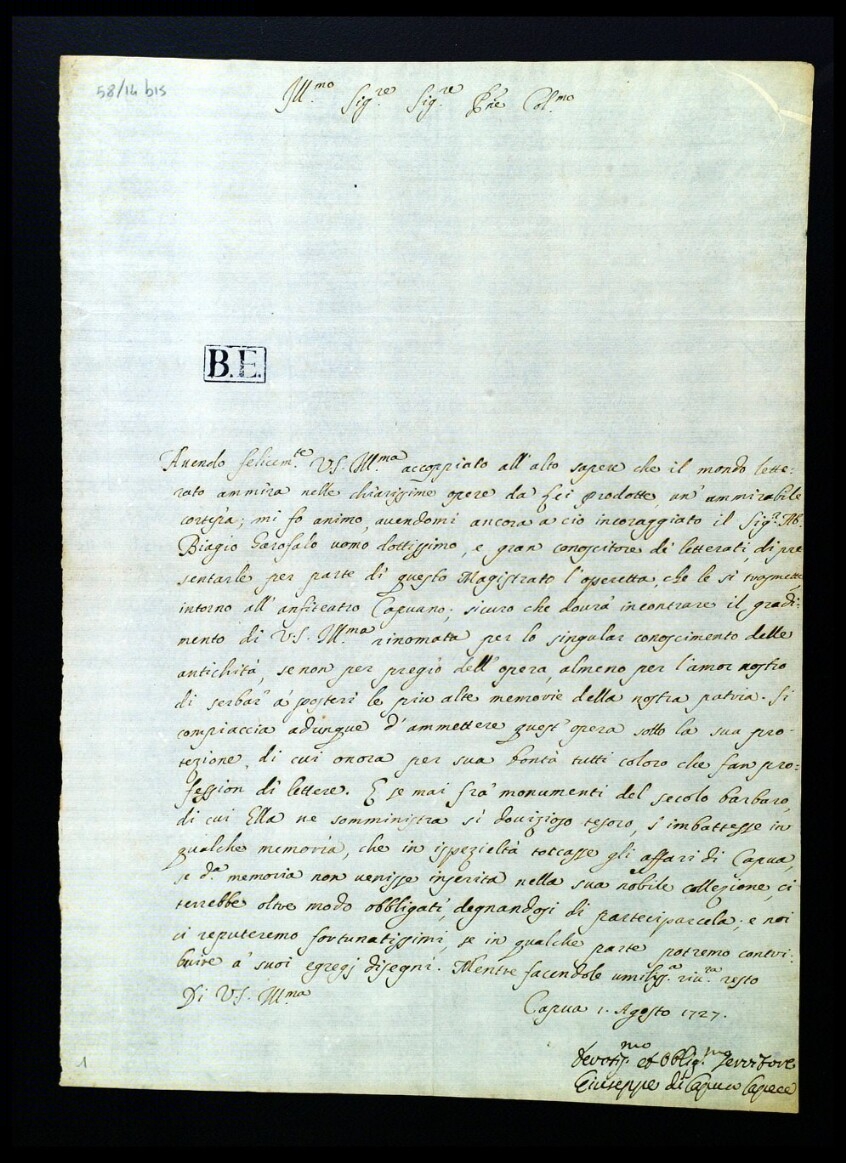 58/14 bis
Ill.mo Sig.re Sig.re Pne Col.mo
B.E.
Avendo felicem.te V.S. Ill.ma accoppiato all'alto sapere che il mondo lette:
rato ammira nelle chiarissime opere da Lei prodotte, un'ammirabile
cortesia; mi fo animo, avendomi ancora a ciò incoraggiato il Sig.r Ab.
Biagio Garofalo uomo dottissimo, e gran conoscitore de' letterati, di pre
sentarle per parte di questo Magistrato l'operetta, che le si trasmette
intorno all'anfiteatro Capuano; sicuro che dovrà incontrare il gradi:
mento di V.S. Ill.ma rinomata per lo singular conoscimento delle
antichità, se non per pregio dell'opera, almeno per l'amor nostro
di serbar' a' posteri le più alte memorie della nostra patria. Si
compiaccia adunque d'ammettere quest'opera sotto la sua pro-
tezione, di cui onora per sua bontà tutti coloro che fan pro:
fession di lettere. E se mai fra' monumenti del secolo barbaro,
di cui Ella ne somministra sì dovizioso tesoro, s'imbattesse in
qualche memoria, che in ispezieltà toccasse gli affari di Capua,
se d.a memoria non venisse inserita nella sua nobile collezione, ci
terrebbe oltre modo obbligati, degnandosi di parteciparcela; e noi
ci reputeremo fortunatissimi, se in qualche parte potremo contri:
buire a' suoi egregj disegni. Mentre facendole umiliss.a riv.za resto
Di V.S. Ill.ma
Capua 1. Agosto 1727.
Devotiss.mo et Obblig.mo Servitore
Giuseppe di Capua Capece
1